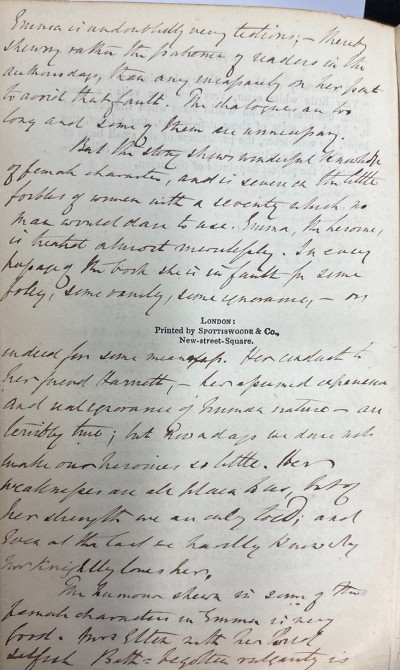 Emma is undoubtedly very tedious; – thereby
shewing rather the patience of readers in the
authors days, than any incapacity on her part
to avoid that fault. The dialogues are too
long and some of them are unnecessary.
But the story shews wonderful knowledge
of female character, and is severe on the little
foibles of women with a severity which no
man would dare to use. Emma, the heroine,
is treated almost mercilessly. In every
passage of the book she is in fault for some
folly, some vanity, some ignorance, – or
London:
Printed by Spottiswoode & Co.,
New-street-Square.
indeed for some meanness. Her conduct to
her friend Harriett, – her assumed experience
and real ignorance of human nature – are
terribly true; but nowadays we dare not
make our heroines so little. Her
weaknesses are all plain to us, but of
her strength we are only told; and
even at the last we hardly know why
Mr Knightley loves her.
The humour shewn in some of the
female characters in Emma is very
good. Mrs Elton with her
selfish Bath = begotten vulgarity is